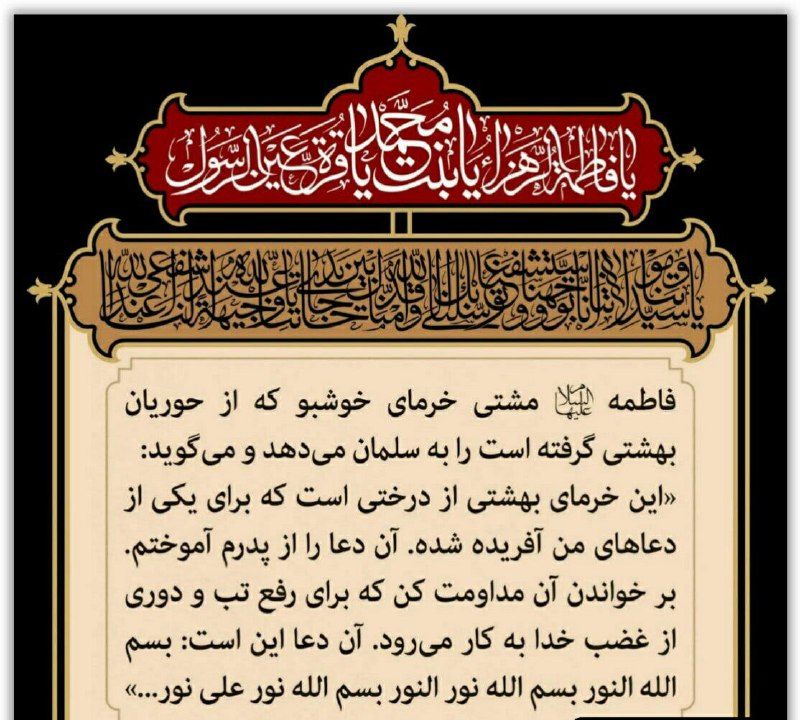 يا فاطمة الزهراء يا بنت محمد يا قرة عين الرسول
يا سيدتنا و مولاتنا انا توجهنا و استشفعنا و توسلنا بك الى الله و قدمناك بين يدي حاجاتنا يا وجيهة عند الله اشفعي لنا عند الله
فاطمه علیها السلام مشتی خرمای خوشبو که از حوریان
بهشتی گرفته است را به سلمان می‌دهد و می‌گوید:
«این خرمای بهشتی از درختی است که برای یکی از
دعاهای من آفریده شده. آن دعا را از پدرم آموختم.
بر خواندن آن مداومت کن که برای رفع تب و دوری
از غضب خدا به کار می‌رود. آن دعا این است: بسم
الله النور بسم الله نور النور بسم الله نور علی نور...»